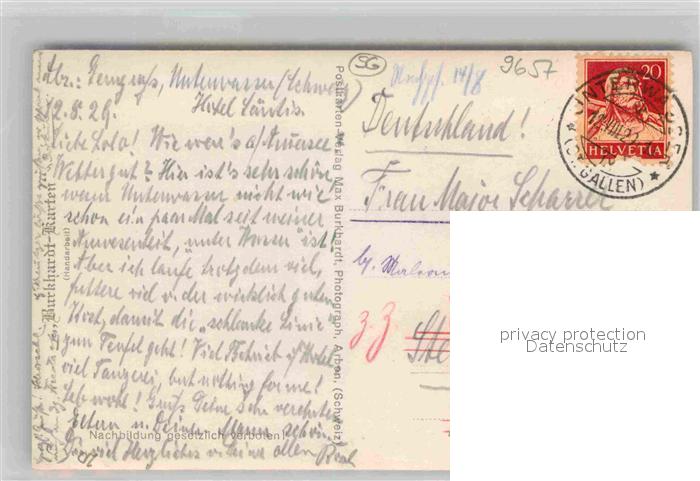 Unterwasser/Schweiz
Hotel Säntis
12.8.29.
Liebe Lolo! Wie wars a/Ammersee
Wetter gut? Hier ist's sehr schön,
wenn Unterwasser nicht wie
schon ein paar Mal seit meiner
Anwesenheit, „unter Wasser" ist!
Aber ich laufe trotzdem viel,
futtere viel v. der wirklich guten
Kost, damit die „schlanke Linie"
zum Teufel geht! Viel Betrieb i/Hotel
viel Tanzerei, but nothing for me!
Leb wohl! Grüß Deine sehr verehrten
Eltern u. Deinen Mann schön
viel Herzliches v. Deine alten
Burkhardt-Karten
(Handarbeit)
Nachbildung gesetzlich verboten!
Postkarten-Verlag Max Burkhardt, Photograph, Arbon, (Schweiz)
SG
14/8
9657
Deutschland!
Frau Major Scharrer
z. Z.
20
HELVETIA
UNTERWASSER
(ST. GALLEN)
privacy protection
Datenschutz